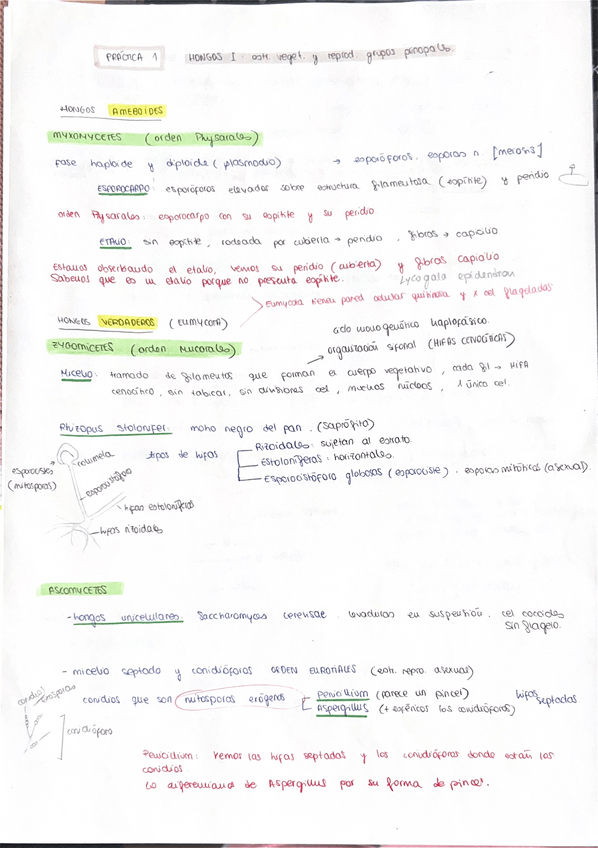 PRÁCTICA 1 HONGOS I: estr veget. y reprod. grupos principales
HONGOS AMEBOIDES
MYXOMYCETES (orden Physarales)
fase haploide y diploide (plasmodio) → esporóforos. esporas n [meiosis]
ESPOROCARPO: esporóforos elevados sobre estructura filamentosa (espítite) y peridio
orden Physarales: esporocarpo con su espitite y su peridio
ETALIO: sin espitite, rodeada por cubierta → peridio, fibras → capilio
Estamos observando el etalio, vemos su peridio (cubierta) y fibras capilio
Sabemos que es un etalio porque no presenta espitite. Lycogala epidendron
Eumycota tienen pared celular quitinosa y x cel flageladas
HONGOS VERDADEROS (EUMYCOTA)
ciclo monogenético haplofásico.
ZYGOMICETES (orden Mucorales)
organización sifonal (HIFAS CENOCÍTICAS)
Micelio: tramado de filamentos que forman el cuerpo vegetativo, cada fil → HIFA
cenocítico, sin tabicar, sin divisiones cel, muchos núcleos, 1 único cel.
Rhizopus stolonifer: moho negro del pan. (saprófito)
tipos de hifas
Rizoidales: sujetan al estrato.
Estoloníferos: horizontales.
Esporocistóforo globosas (esporociste). esporas mitóticas (asexual).
columela
esporociste
(mitosporas)
esporocistóforo
hifas estoloníferas
hifas rizoidales
ASCOMYCETES
- hongos unicelulares Saccharomyces cerevisae. levaduras en suspensión. cel cocoides
sin flagelo.
- micelio septado y conidióforos ORDEN EUROTIALES (estr. repro. asexual)
conidios que son mitosporas exógenas
Penicillium (parece un pincel)
Aspergillus (+ esféricos los conidióforos)
hifas septadas
conidios
exosporas
conidióforo
Penicillium: vemos las hifas septadas y los conidióforos donde están los
conidios
Lo diferenciamos de Aspergillus por su forma de pincel.